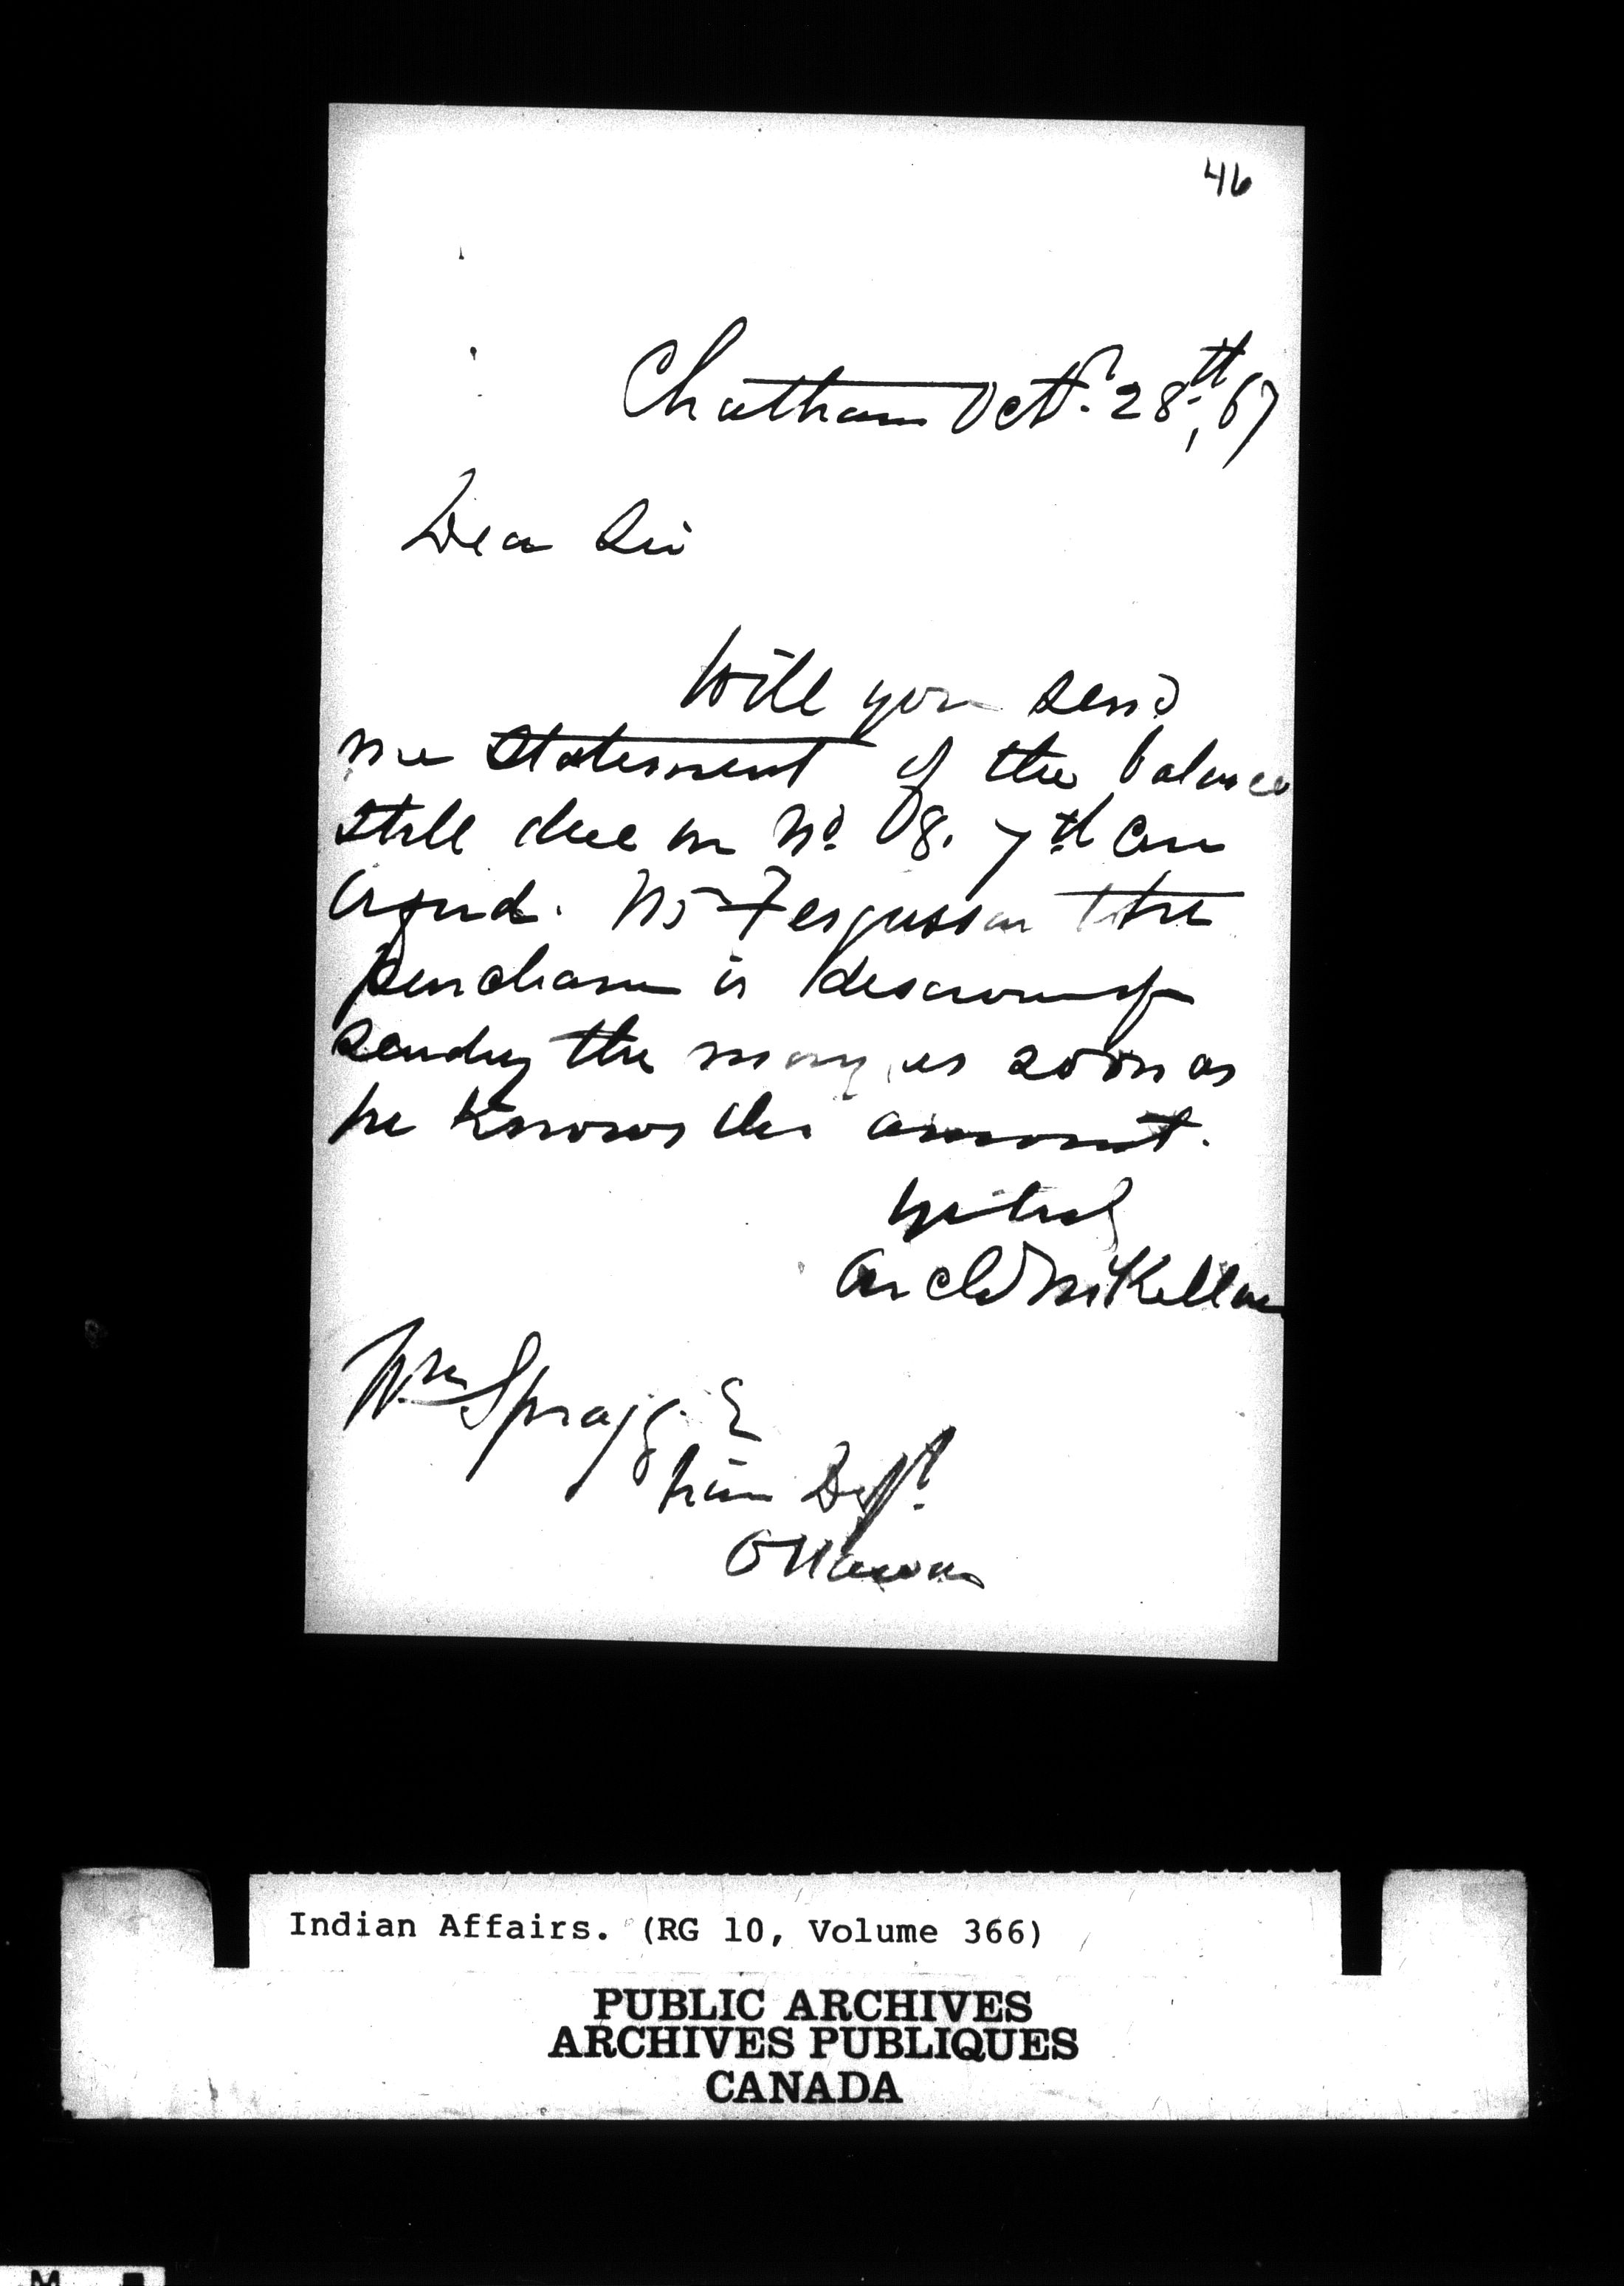 46
Chatham Octr. 28th, 67
Dear Sir
Will you send
me Statement of the balance
still due on No. 8. 7th Con
Orford. Mr Fergusson the
purchaser is desirous of
sending the money as soon as
he knows the amount.
Yrs truly
Archd McKellar
Wm Spragg E
Dept.
Ottawa
Indian Affairs. (RG 10, Volume 366)
PUBLIC ARCHIVES
ARCHIVES PUBLIQUES
CANADA
M